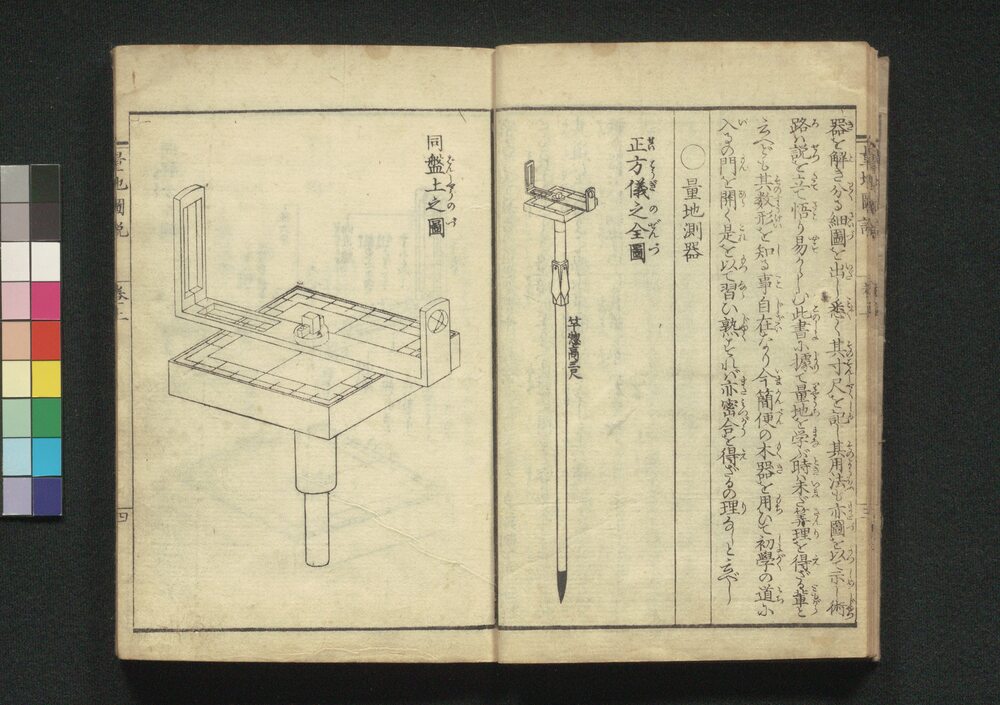 器を解き分る細圖を出し悉く其寸尺を記し其用法も亦圖を以て示し術
路は説を立て悟り易からしむ此書に據て量地を学ぶ時は未だ算理を得ざる輩と
云へども其数形を知る事自在なり今簡便の木器を用いて初學の道に
入るの門を開く是を以て習い熟すれば亦密合を得ざるの理なしと云べし
○量地測器
正方儀之全圖
竿惣高三尺
同盤上之圖
量地圖説
四